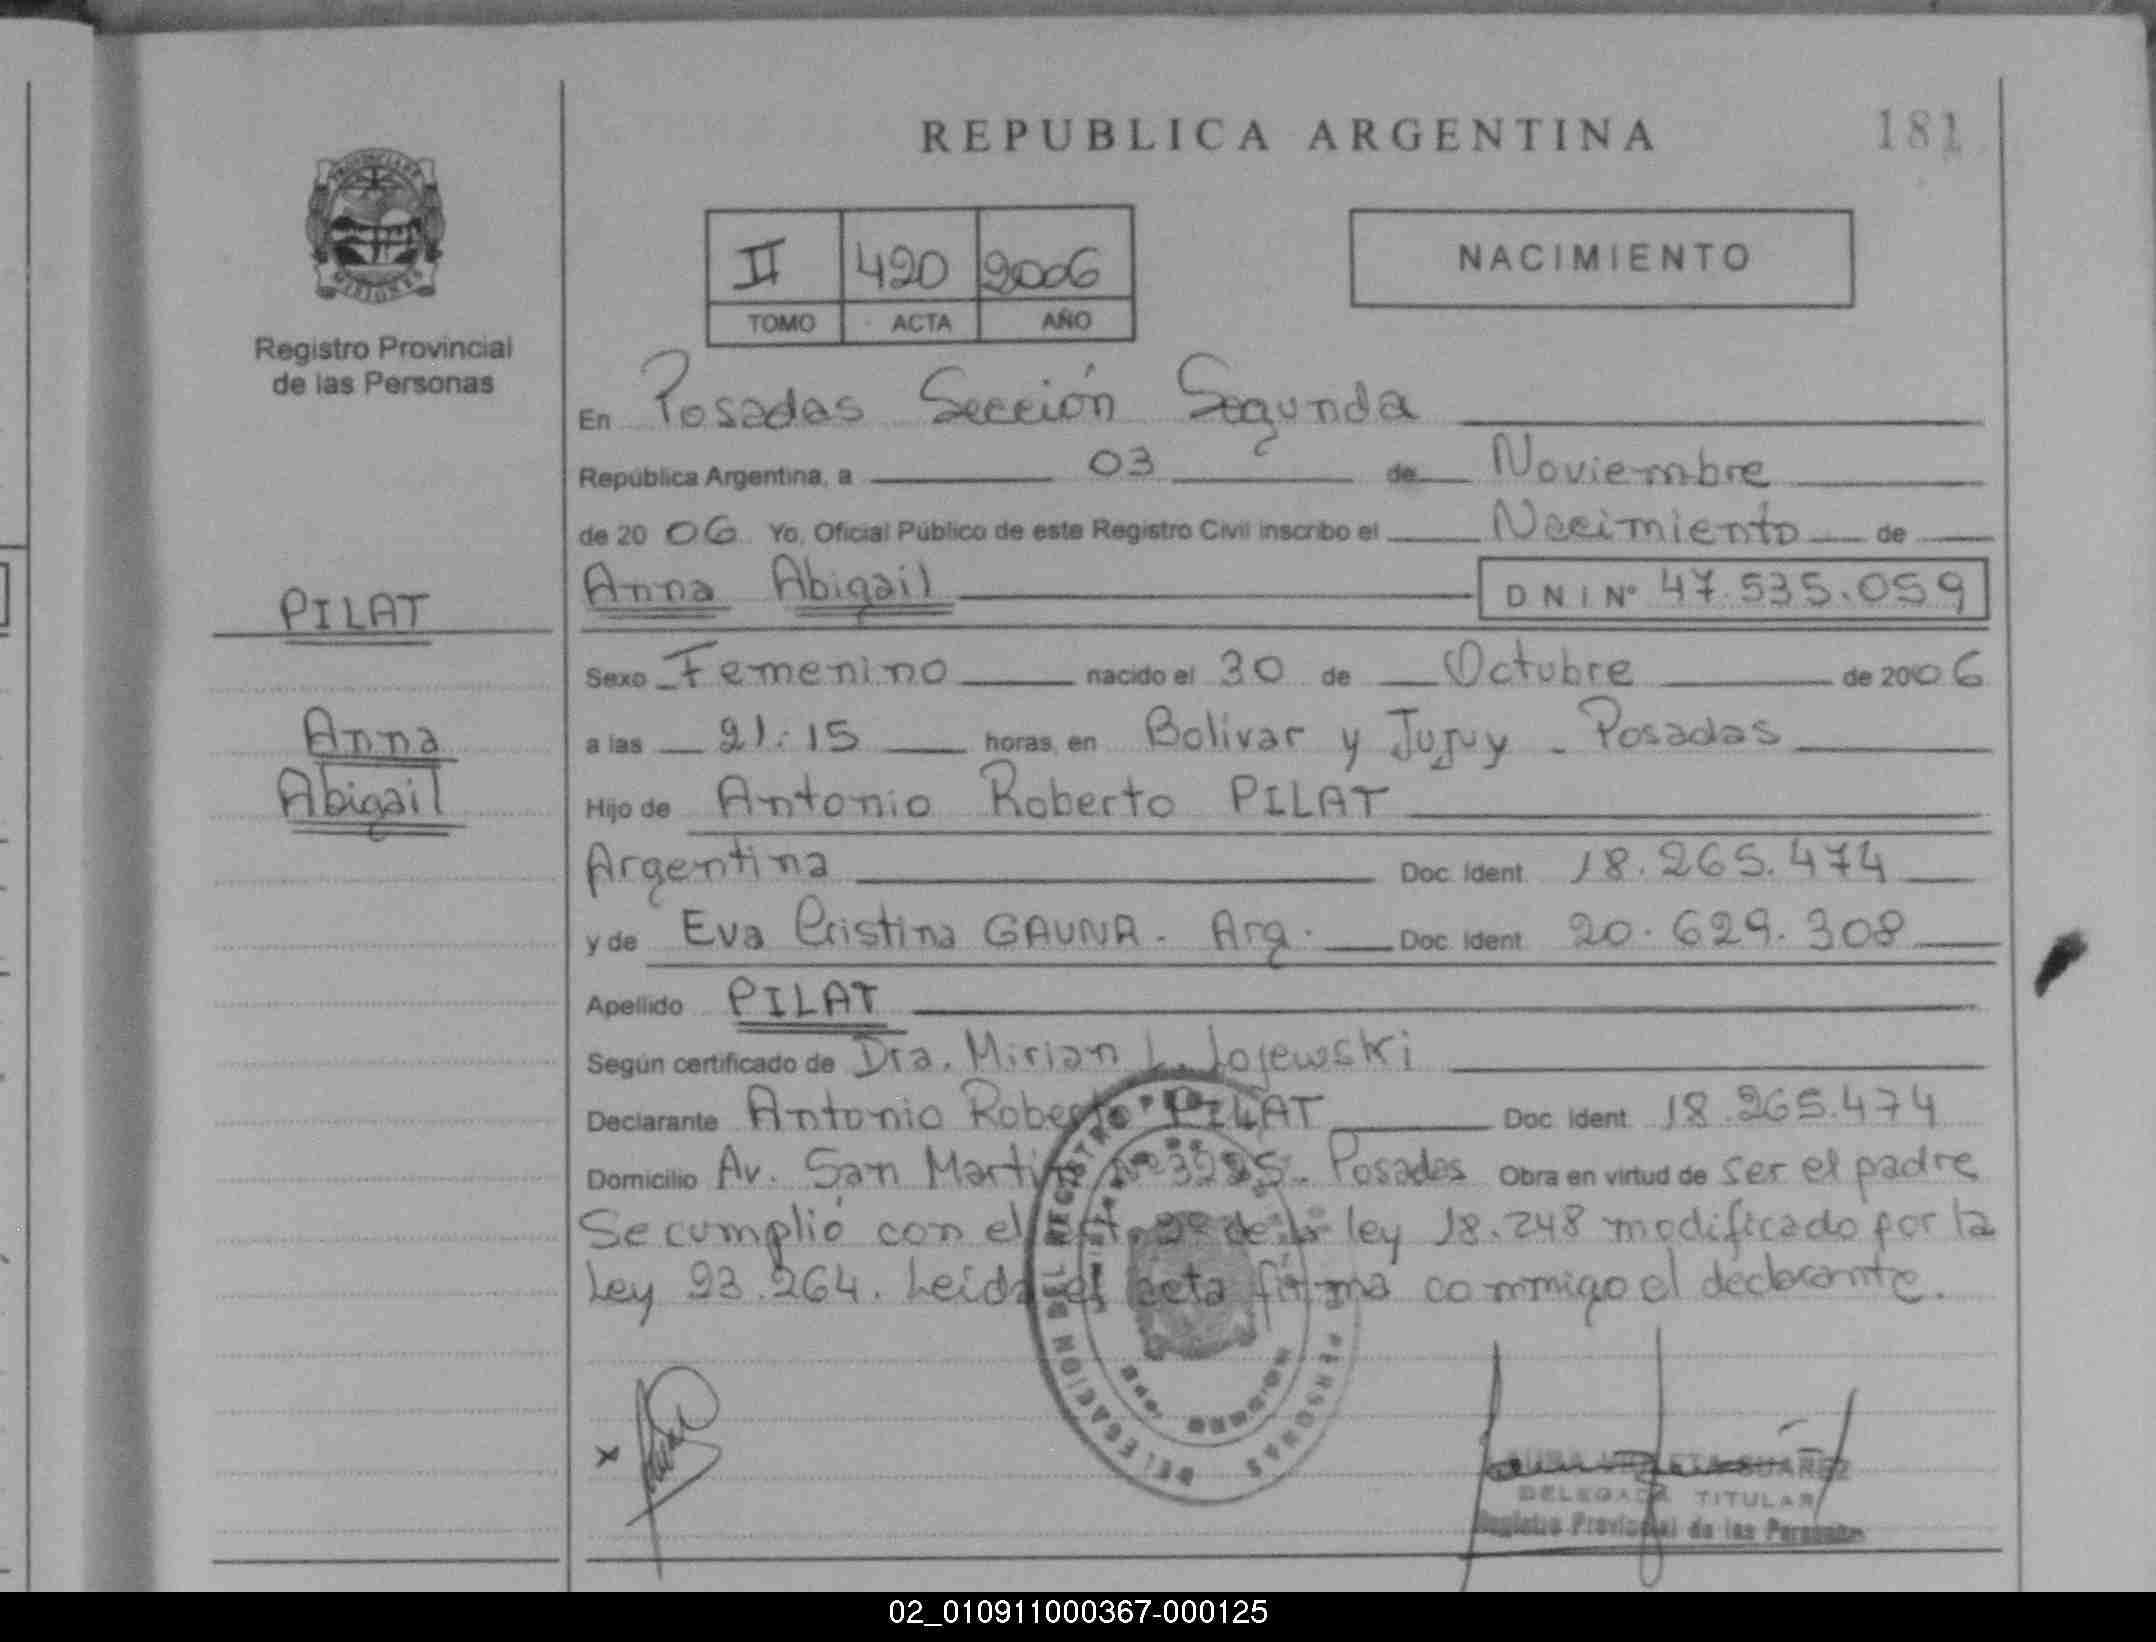 REPUBLICA ARGENTINA
181
PROVINCIA DE
MISIONES
Registro Provincial
de las Personas
II 420 2006
TOMO ACTA AÑO
NACIMIENTO
En Posadas Sección Segunda
República Argentina, a 03 de Noviembre
de 2006 Yo, Oficial Público de este Registro Civil inscribo el Nacimiento de
PILAT
Anna Abigail DNI Nº 47.535.059
Sexo Femenino nacido el 30 de Octubre de 2006
Anna
a las 21:15 horas, en Bolivar y Jujuy - Posadas
Abigail
Hijo de Antonio Roberto PILAT
Argentina Doc. Ident. 18.265.474
y de Eva Cristina GAUNA. Arg. Doc. Ident. 20.629.308
Apellido PILAT
Según certificado de Dra. Mirian L. Lojewski
Declarante Antonio Roberto PILAT Doc. Ident. 18.265.474
Domicilio Av. San Martin Posadas Obra en virtud de ser el padre
Se cumplió con el ley 18.248 modificado por la
Ley 23.264. Leida el acta firma conmigo el declarante.
DELEGACION DEL REGISTRO
PERSONAS
X
SUAREZ
DELEGADA TITULAR
Registro Provincial de las Personas
02_010911000367-000125